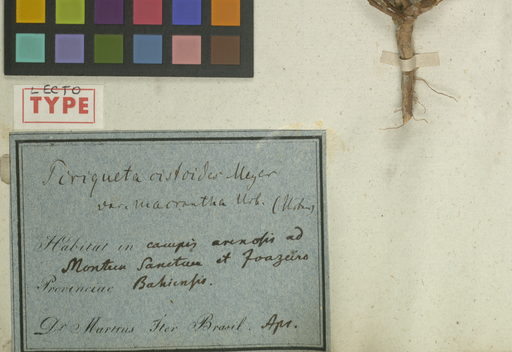 LECTO
TYPE
Piriqueta cistoides Meyer
var. macrantha Urb. (Urban)
Habitat in campis arenosis ad
Montem Sanctum et Joazeiro
Provinciae Bahiensis.
Dr. Martius Iter Brasil. Apr.